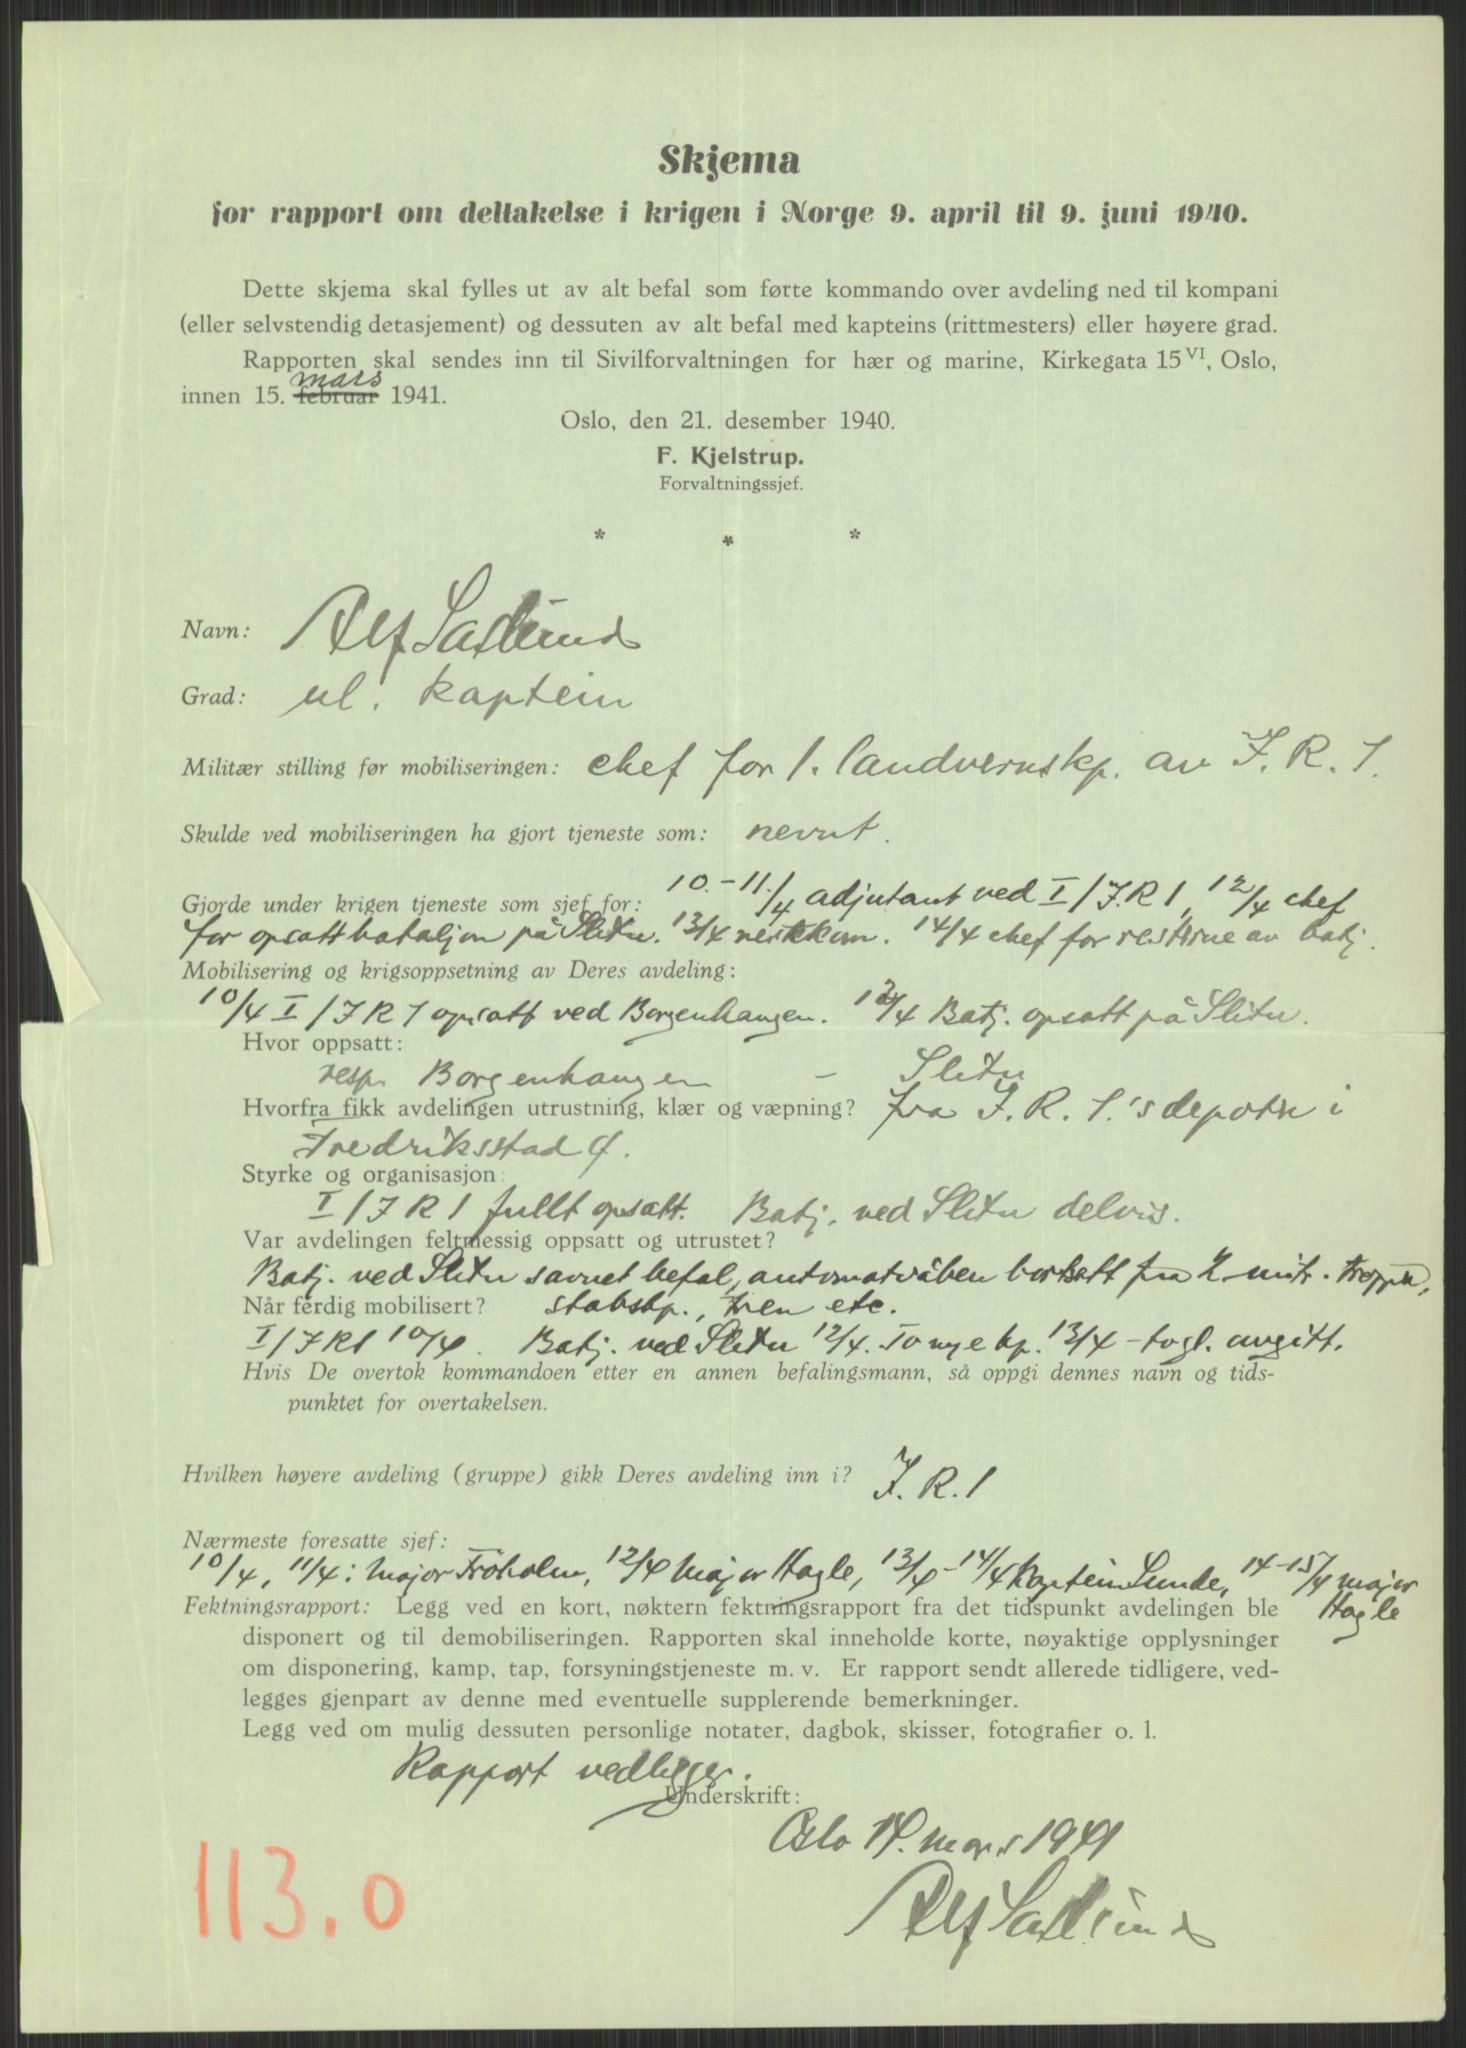 Skjema
for rapport om deltakelse i krigen i Norge 9. april til 9. juni 1940.
Dette skjema skal fylles ut av alt befal som førte kommando over avdeling ned til kompani
(eller selvstendig detasjement) og dessuten av alt befal med kapteins (rittmesters) eller høyere grad.
Rapporten skal sendes inn til Sivilforvaltningen for hær og marine, Kirkegata 15 VI, Oslo,
mars
innen 15. februar 1941.
Oslo, den 21. desember 1940.
F. Kjelstrup.
Forvaltningssjef.
* * *
Navn: Alf
Grad: kaptein
Militær stilling før mobiliseringen: chef for 1. landvernskp. av I. R. 1.
Skulde ved mobiliseringen ha gjort tjeneste som: nevnt.
Gjorde under krigen tjeneste som sjef for: 10.-11./4 adjutant ved I/I.R 1, 12/4 chef
for opsatt bataljon på Slitu. 13/4 nestkom. 14/4 chef for restene av batj.
Mobilisering og krigsoppsetning av Deres avdeling:
10/4 I/I R 1 opsatt ved Borgenhaugen. 12/4 Batj. opsatt på Slitu.
Hvor oppsatt:
resp. Borgenhaugen - Slitu
Hvorfra fikk avdelingen utrustning, klær og væpning? fra I. R. 1.'s depoter i
Fredriksstad
Styrke og organisasjon:
I/I R 1 fullt opsatt. Batj. ved Slitu delvis.
Var avdelingen feltmessig oppsatt og utrustet?
Batj. ved Slitu savnet befal, automatvåben bortsett fra 2 mitr. tropper,
Når ferdig mobilisert? stabskp., tren etc.
I/I R 1 10/4. Batj. ved Slitu 12/4. To nye kp. 13/4 - avgitt.
Hvis De overtok kommandoen etter en annen befalingsmann, så oppgi dennes navn og tids-
punktet for overtakelsen.
Hvilken høyere avdeling (gruppe) gikk Deres avdeling inn i? I. R. 1
Nærmeste foresatte sjef:
10/4, 11/4: Major Fröholm, 12/4 Major Hagle, 13/4-14/4 Kaptein Sunde, 14-15/4 major
Hagle
Fektningsrapport: Legg ved en kort, nøktern fektningsrapport fra det tidspunkt avdelingen ble
disponert og til demobiliseringen. Rapporten skal inneholde korte, nøyaktige opplysninger
om disponering, kamp, tap, forsyningstjeneste m. v. Er rapport sendt allerede tidligere, ved-
legges gjenpart av denne med eventuelle supplerende bemerkninger.
Legg ved om mulig dessuten personlige notater, dagbok, skisser, fotografier o. l.
Rapport vedlegger.
Underskrift:
Oslo 14. mars 1941
Alf
113.0